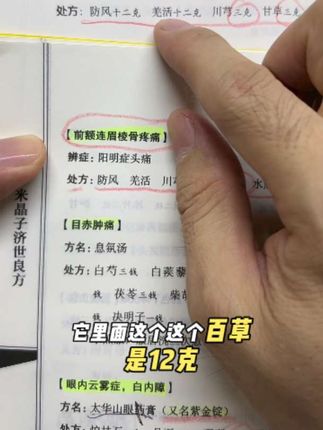 处方：防风十二克 羌活十二克 川芎三克 甘草三克
【前额连眉棱骨疼痛】
辨症：阳明症头痛
处方：防风 羌活 川
米晶子济世良方
【目赤肿痛】
方名：息氛汤
处方：白芍三钱 白蒺藜
钱 茯苓三钱 柴胡
钱 决明子一钱
它里面这个这个百草
是12克
【眼内云雾症，白内障】
方名：太华山眼药膏（又名紫金锭）